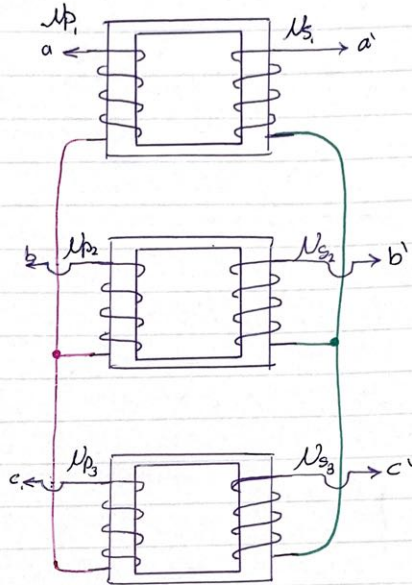 Np1 Ns1
a a'
b Np2 Ns2 b'
c Np3 Ns3 c'